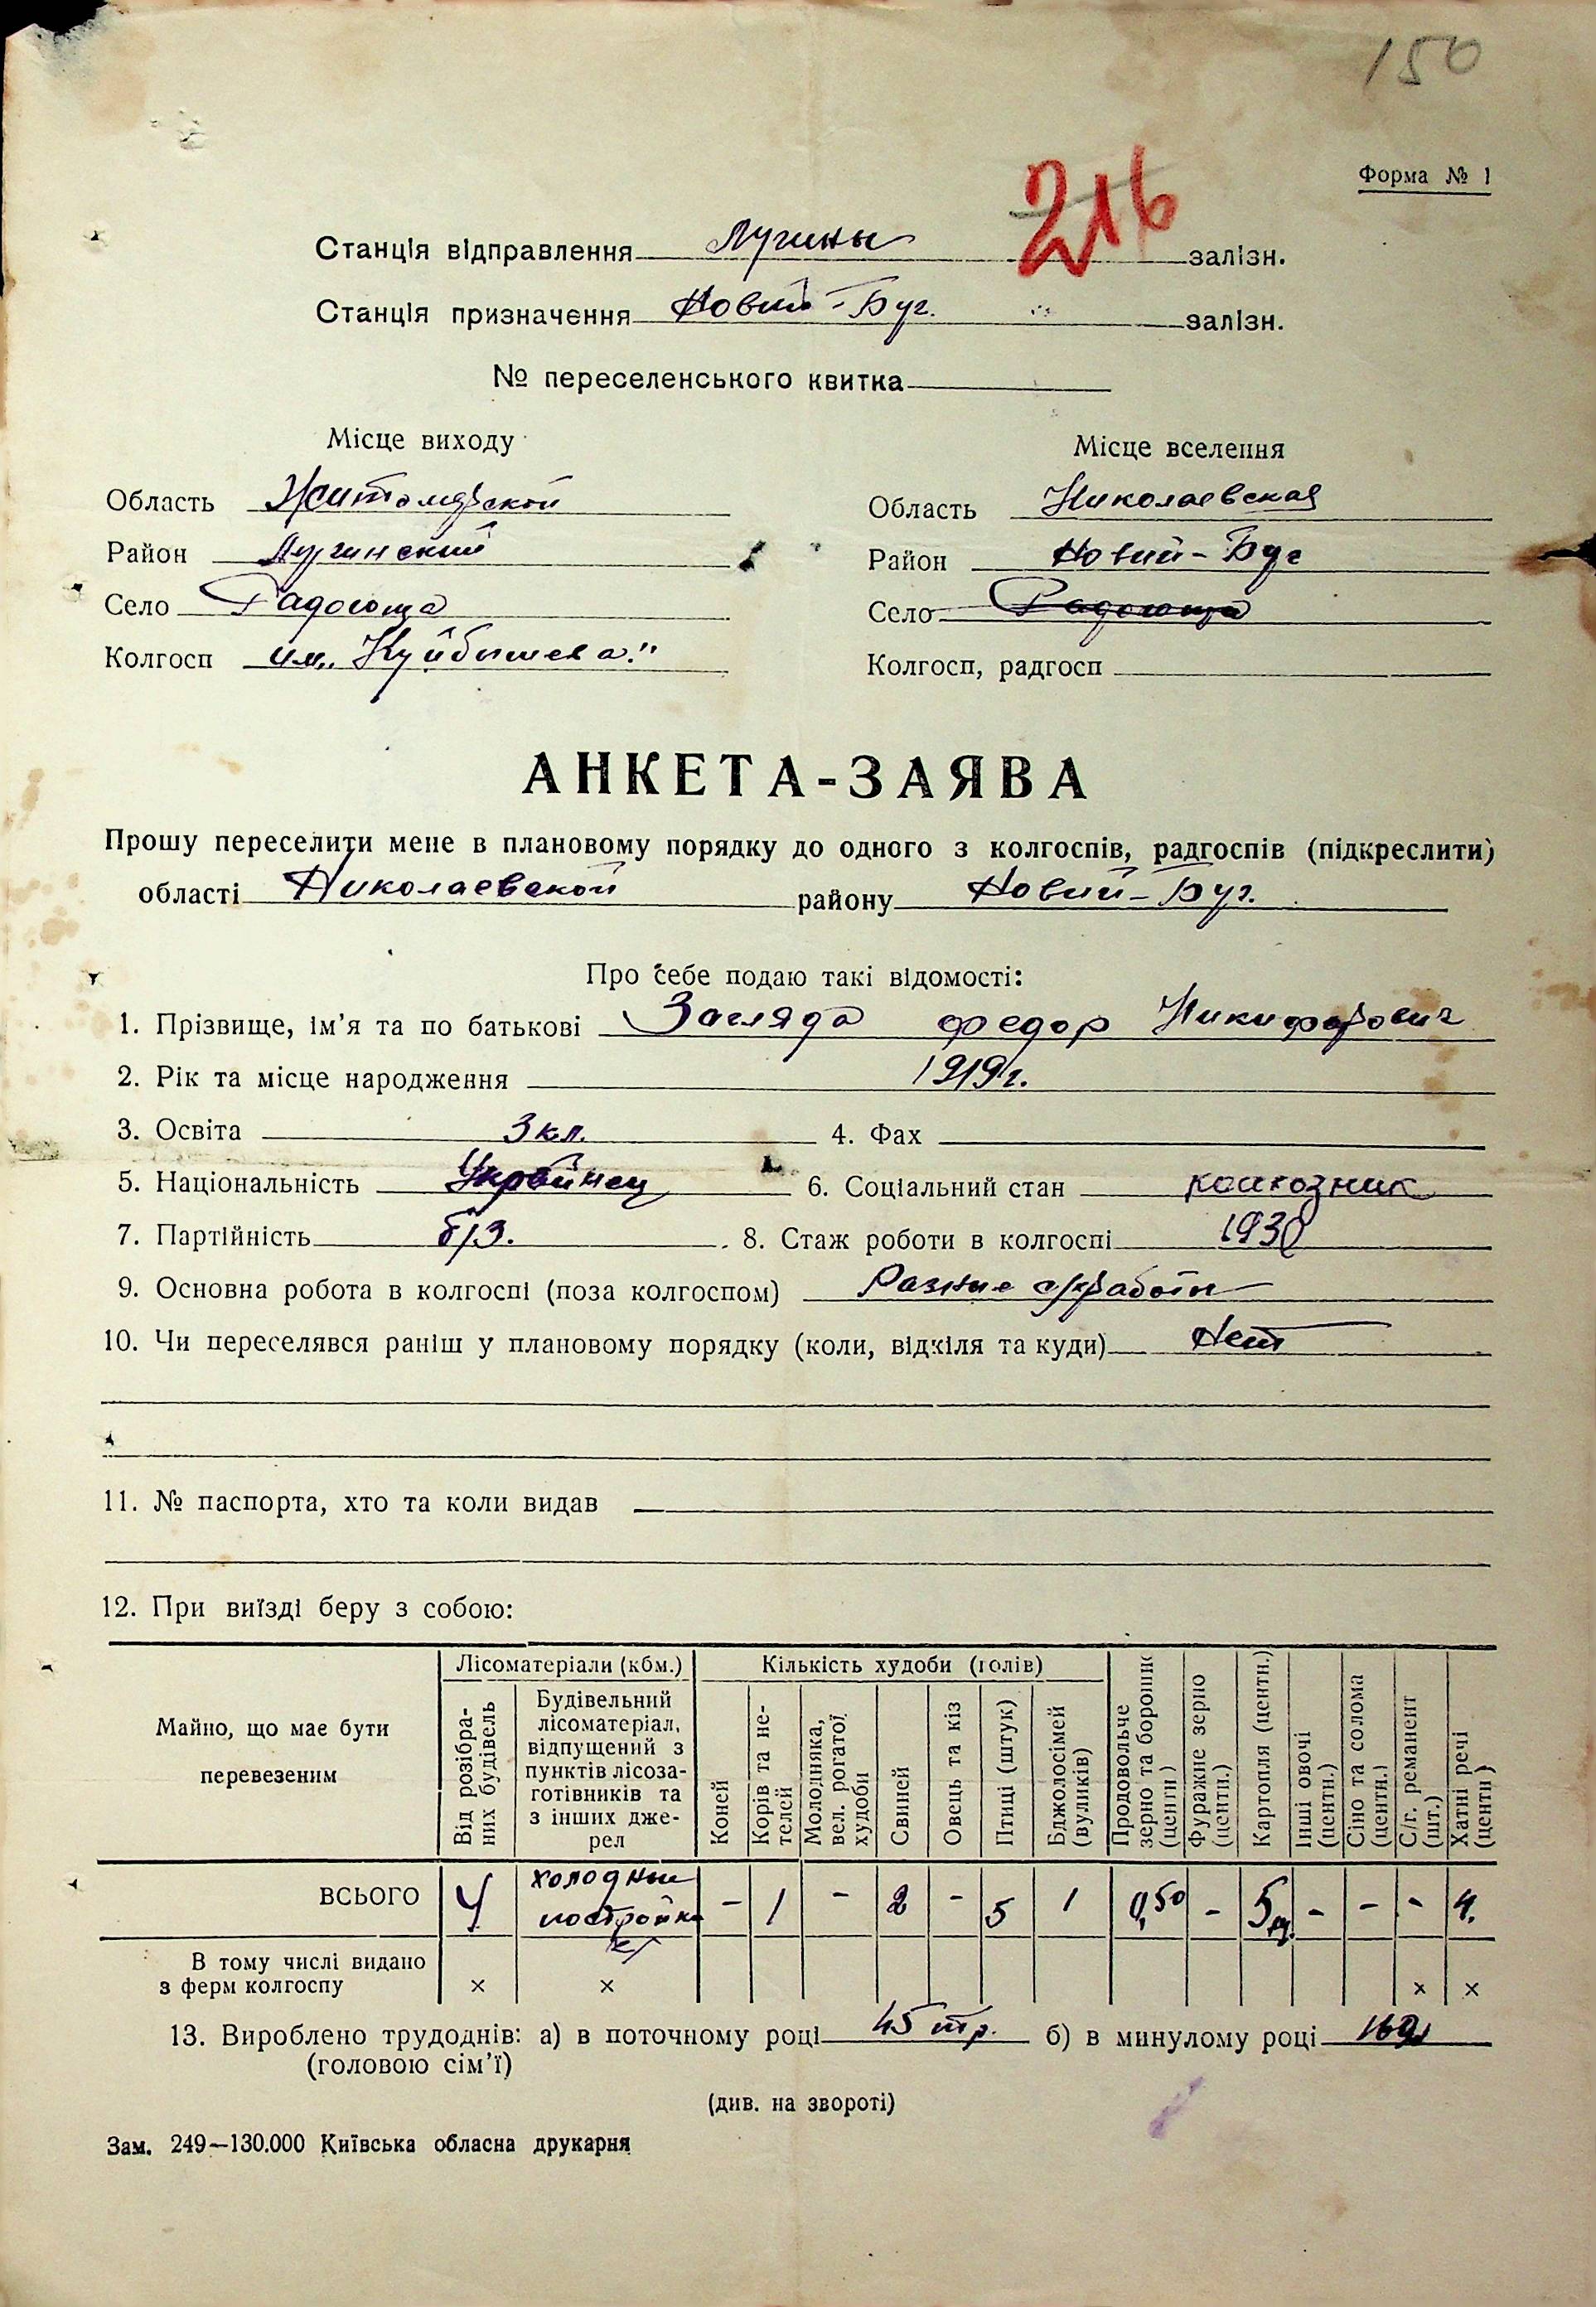 150
Форма № 1
216
Станція відправлення Лугины залізн.
Станція призначення Новий-Буг. залізн.
№ переселенського квитка
Місце виходу
Місце вселення
Область Житомирской
Область Николаевская
Район Лугинский
Район Новий-Буг
Село Радогоща
Село Радогоща
Колгосп им. „Куйбышева."
Колгосп, радгосп
АНКЕТА-ЗАЯВА
Прошу переселити мене в плановому порядку до одного з колгоспів, радгоспів (підкреслити)
області Николаевской району Новий-Буг.
Про себе подаю такі відомості:
1. Прізвище, ім'я та по батькові Загляда Федор Никифорович
2. Рік та місце народження 1919г.
3. Освіта 3 кл. 4. Фах
5. Національність Украинец 6. Соціальний стан колхозник
7. Партійність 8. Стаж роботи в колгоспі 1930
9. Основна робота в колгоспі (поза колгоспом) Разные с/х работы
10. Чи переселявся раніш у плановому порядку (коли, відкіля та куди) Нет
11. № паспорта, хто та коли видав
12. При виїзді беру з собою:
Майно, що має бути перевезеним
Лісоматеріали (кбм.)
Від розібраних будівель
Будівельний лісоматеріал, відпущений з пунктів лісозаготівників та з інших джерел
Кількість худоби (голів)
Коней
Корів та нетелей
Молодняка, вел. рогатої худоби
Свиней
Овець та кіз
Птиці (штук)
Бджолосімей (вуликів)
Продовольче зерно та борошно (центн.)
Фуражне зерно (центн.)
Картопля (центн.)
Інші овочі (центн.)
Сіно та солома (центн.)
С/г. реманент (шт.)
Хатні речі (центн)
ВСЬОГО 4 холодные постройки - 1 - 2 - 5 1 0,50 - 5ц. - - - 4.
В тому числі видано з ферм колгоспу × × × ×
13. Вироблено трудоднів: а) в поточному році 45 тр. б) в минулому році
(головою сім'ї)
(див. на звороті)
Зам. 249—130.000 Київська обласна друкарня